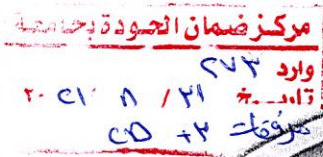 مركز ضمان الجودة بجامعة
وارد ٢٧٣
تاريخ ٣١ / ٨ / ٢٠٢١
مرفقات ٣ + CD